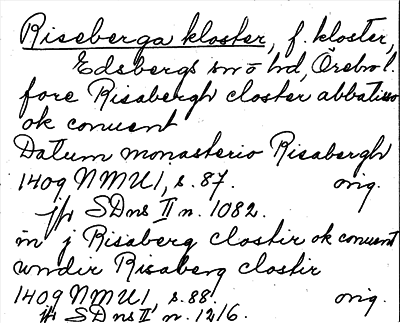 Riseberga kloster, f. kloster,
Edsbergs sn o hd, Örebro l.
fore Risabergh closter abbatisso
ok conuent
Datum monasterio Risabergh
1409 NMU 1, s. 87. orig.
jfr SDns II n. 1082.
in j Risaberg clostir ok conuent
wndir Risaberg clostir
1409 NMU 1, s. 88. orig.
jfr SDns II n. 1216.